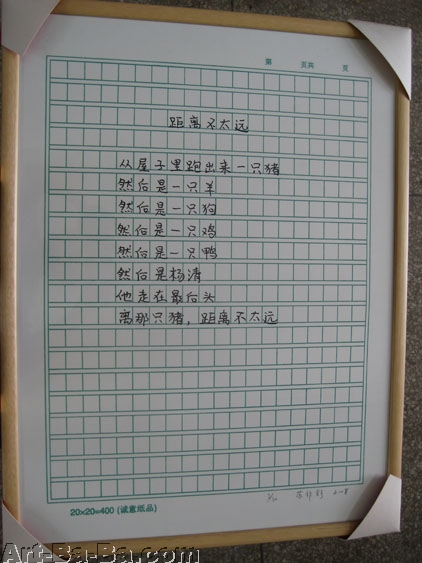 第 页共 页
距离不太远
从屋子里跑出来一只猪
然后是一只羊
然后是一只狗
然后是一只鸡
然后是一只鸭
然后是杨清
他走在最后头
离那只猪，距离不太远
20×20=400 (诚意纸品)
Art-Ba-Ba.com